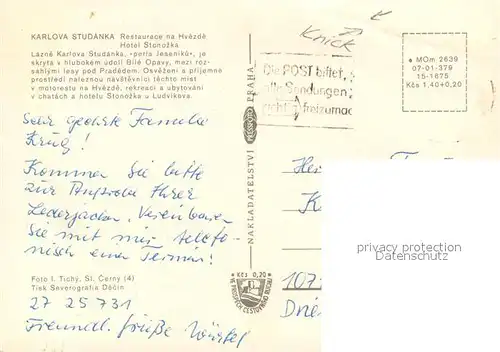 KARLOVA STUDÁNKA Restaurace na Hvězdě
Hotel Stonožka
Lázně Karlova Studánka, »perla Jeseníků«, je
skryta v hlubokém údolí Bílé Opavy, mezi roz-
sáhlými lesy pod Pradědem. Osvěžení a příjemné
prostředí naleznou návštěvníci těchto míst
v motorestu na Hvězdě, rekreaci a ubytování
v chatách a hotelu Stonožka u Ludvíkova.
Sehr geehrte Familie
Krug!
Kommen Sie bitte
zur Anprobe Ihrer
Lederjacken. Vereinbaren
Sie mit mir telefo-
nisch einen Termin!
Foto I. Tichý, Sl. Černý (4)
Tisk Severografia Děčín
27 25 731
Freundl. Grüße
NAKLADATELSTVÍ
PRAHA
Knick
Die POST bittet,
alle Sendungen
richtig freizumac
MOm 2639
07-01-379
15-1675
Kčs 1,40+0,20
Her
K
107
Kčs 0,20
VE PROSPĚCH CESTOVNÍHO RUCHU
phothek wegen
Datenschutz